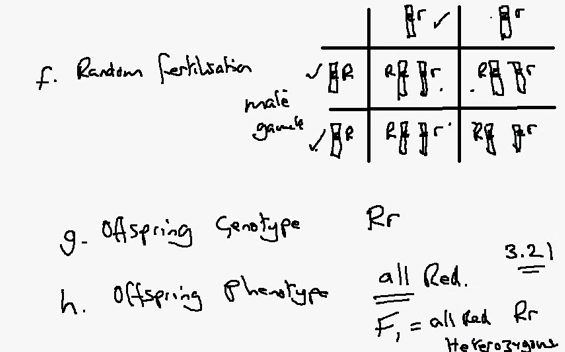 r ✓ r
f. Random Fertilisation ✓ R R r R r
male
gamete ✓ R R r R r
g. Offspring Genotype Rr
3.21
h. Offspring Phenotype all Red.
F1 = all Red Rr
Heterozygous